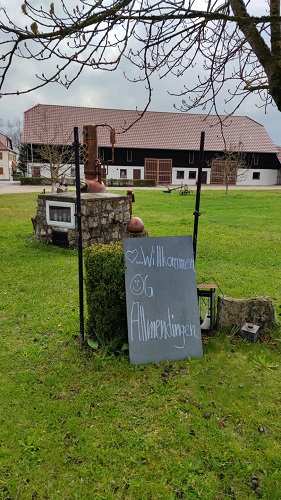 ♡-Willkommen
OG
Allmendingen